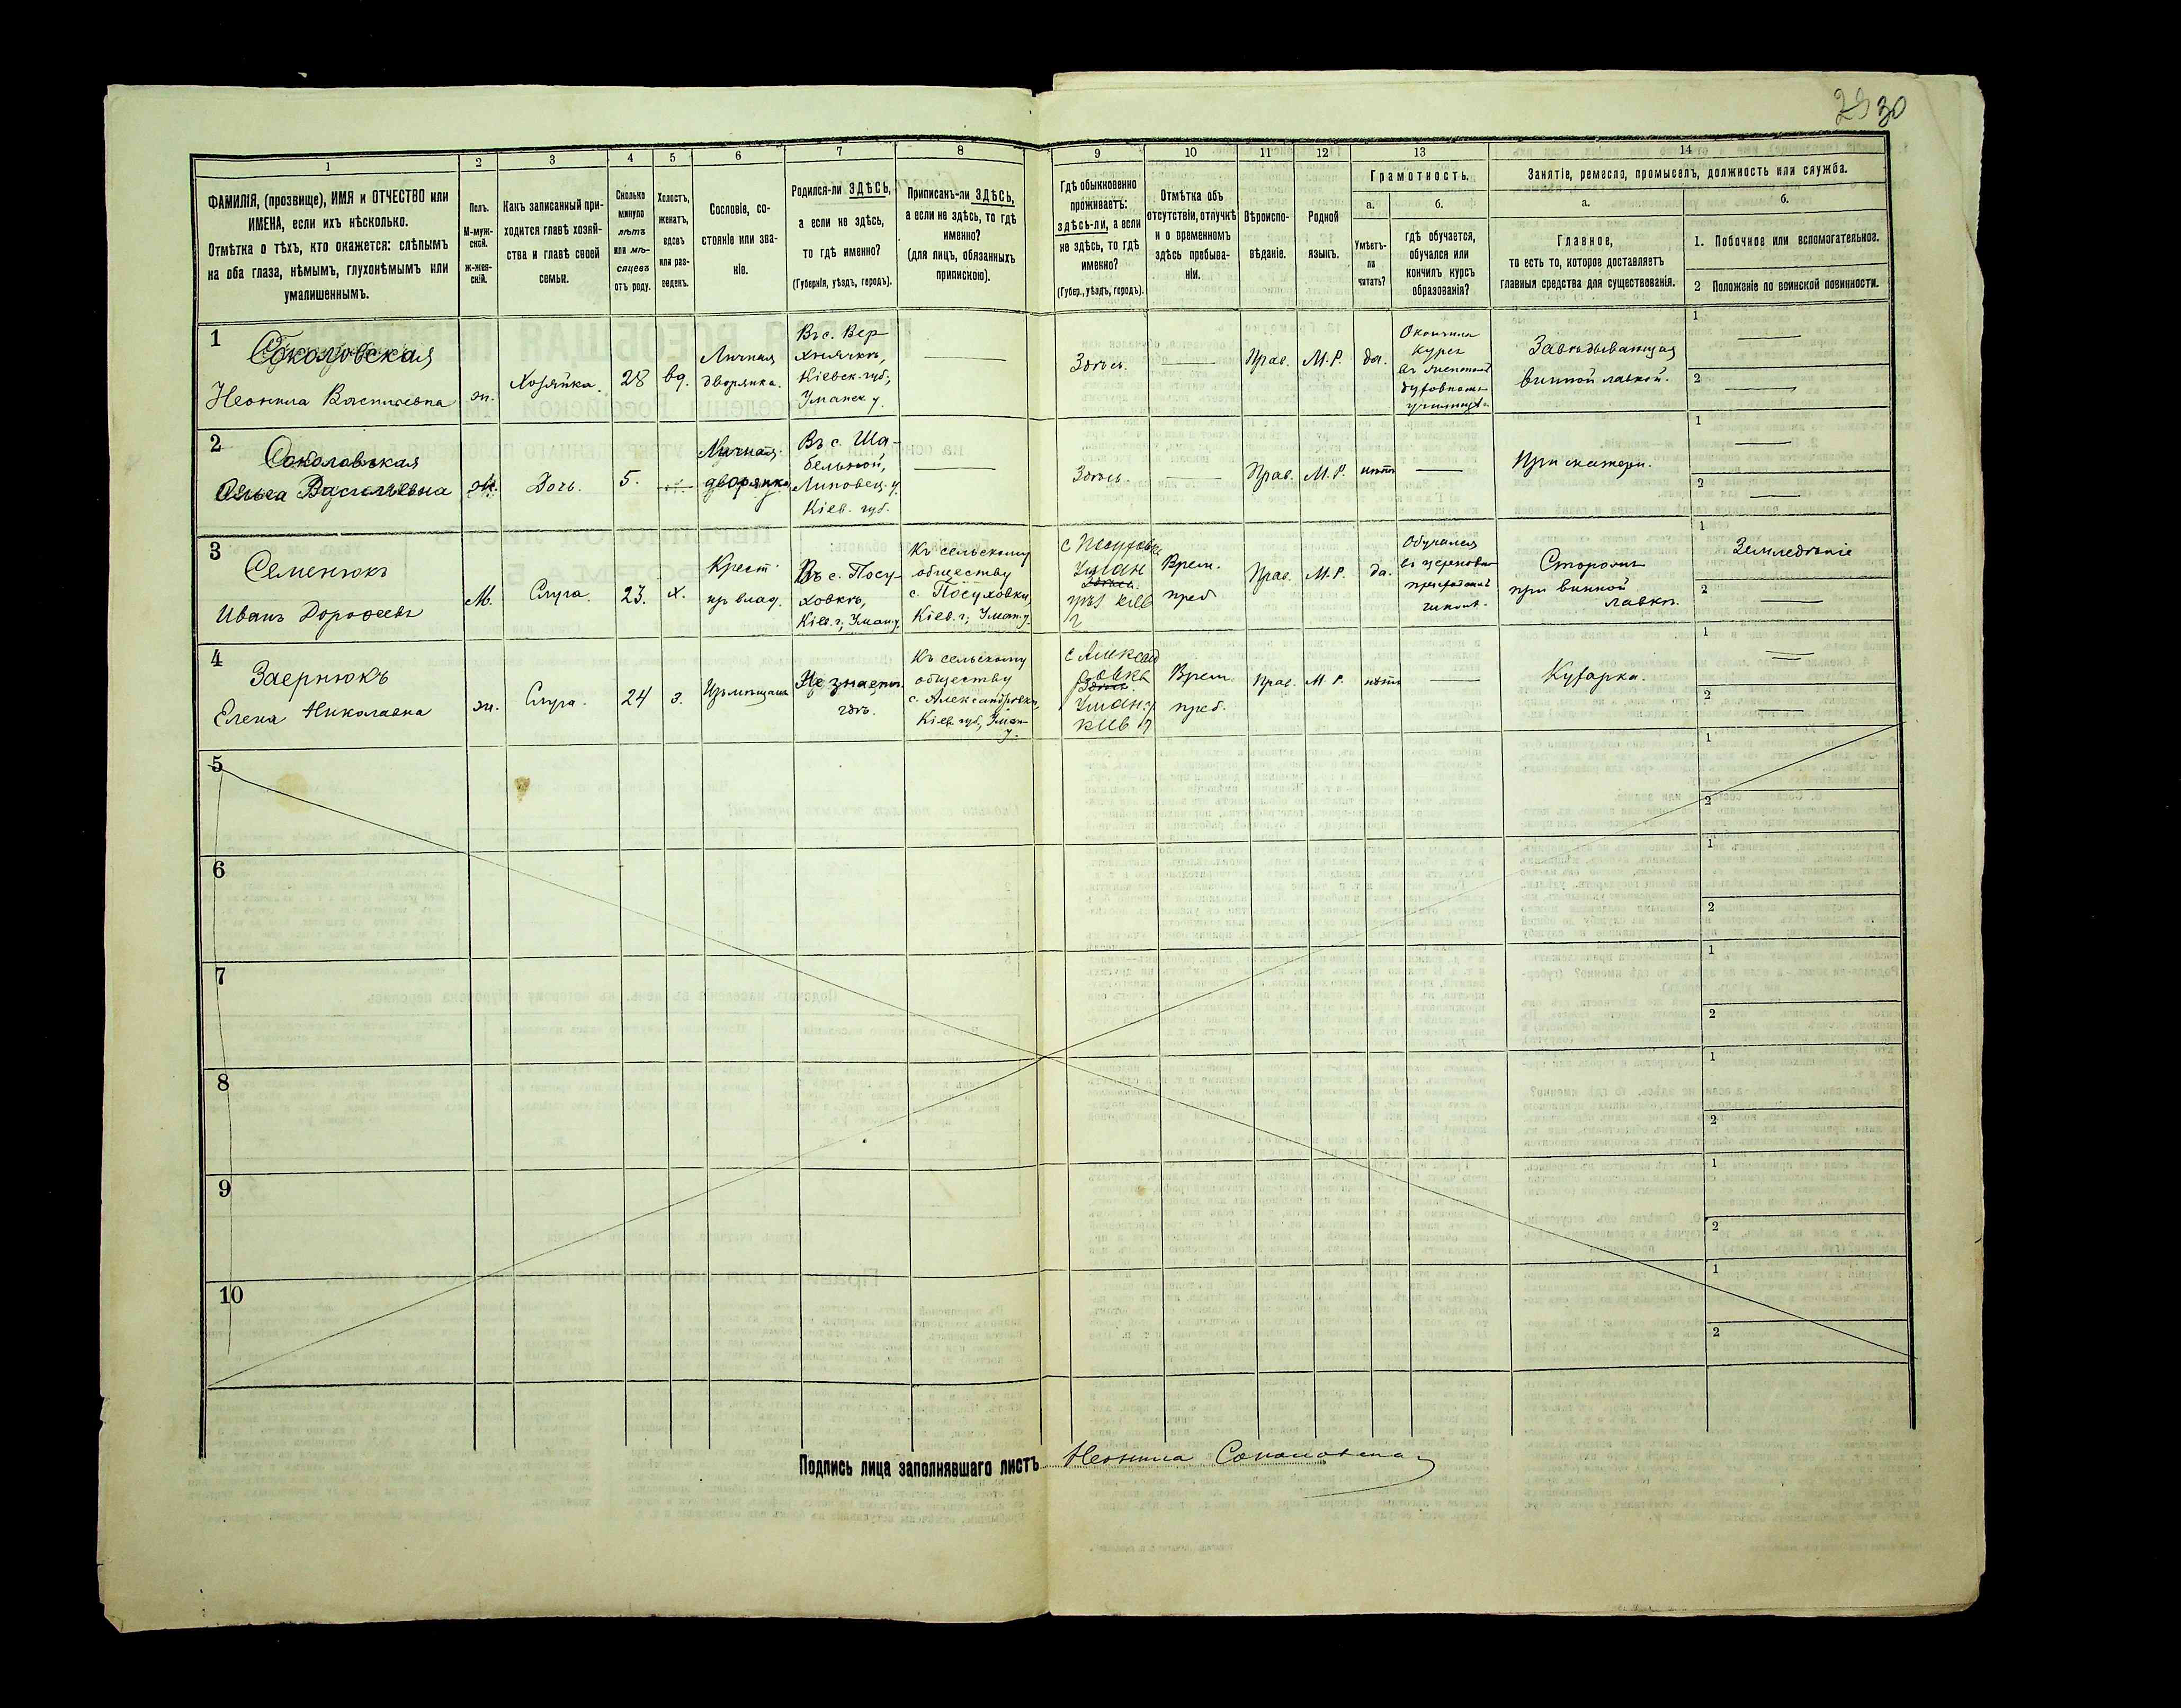 29 30
1 2 3 4 5 6 7 8 9 10 11 12 13 14
ФАМИЛІЯ, (прозвище), ИМЯ и ОТЧЕСТВО или
ИМЕНА, если ихъ нѣсколько.
Отмѣтка о тѣхъ, кто окажется: слѣпымъ
на оба глаза, нѣмымъ, глухонѣмымъ или
умалишеннымъ.
Полъ.
М-муж-
ской.
ж-жен-
скій.
Какъ записанный при-
ходится главѣ хозяй-
ства и главѣ своей
семьи.
Сколько
минуло
лѣтъ
или мѣ-
сяцевъ
отъ роду.
Холостъ,
женатъ,
вдовъ
или раз-
веденъ.
Сословіе, со-
стояніе или зва-
ніе.
Родился-ли ЗДѢСЬ,
а если не здѣсь,
то гдѣ именно?
(Губернія, уѣздъ, городъ).
Приписанъ-ли ЗДѢСЬ,
а если не здѣсь, то гдѣ
именно?
(для лицъ, обязанныхъ
припискою).
Гдѣ обыкновенно
проживаетъ:
здѣсь-ли, а если
не здѣсь, то гдѣ
именно?
(Губер., уѣздъ, городъ).
Отмѣтка объ
отсутствіи, отлучкѣ
и о временномъ
здѣсь пребыва-
ніи.
Вѣроиспо-
вѣданіе.
Родной
языкъ.
Грамотность.
а.
Умѣетъ-
ли
читать?
б.
гдѣ обучается,
обучался или
кончилъ курсъ
образованія?
Занятіе, ремесло, промыселъ, должность или служба.
а.
Главное,
то есть то, которое доставляетъ
главныя средства для существованія.
б.
1. Побочное или вспомогательное.
2 Положеніе по воинской повинности.
1
Соколовская
Неонила Васильевна
ж.
Хозяйка.
28
вд.
Личная
дворянка.
Въ с. Вер-
хнячкѣ,
Кіевск. губ.,
Уманск у.
Здѣсь.
Прав.
М.Р.
да.
Окончила
курсъ
въ
духовномъ
училищѣ.
Завѣдывающая
винной лавкой.
1
2
2
Соколовская
Ольга Васильевна
ж.
Дочь.
5.
Личная
дворянка
Въ с. Ша-
бельной,
Липовец. у.
Кіев. губ.
Здѣсь.
Прав.
М.Р.
нѣтъ
При матери.
1
2
3
Семенюкъ
Иванъ Дорофеевъ
М.
Слуга.
23.
х.
Крест.
изъ влад.
Въ с. Посу-
ховкѣ,
Кіев. г., Уман. у.
Къ сельскому
обществу
с. Посуховки,
Кіев. г., Уман. у.
с Посуховка
Уман
Здѣсь.
уѣз кіев
г
Врем.
преб
Прав.
М.Р.
да.
Обучался
въ церковно
приходской
школѣ.
Сторожъ
при винной
лавкѣ.
1
Земледѣліе
2
4
Заернюкъ
Елена Николаевна
ж.
Слуга.
24
з.
Изъ мѣщанъ
Не знаетъ
гдѣ.
Къ сельскому
обществу
с. Александровки,
Кіев. губ., Уман-
у.
с Александ
ровка
Здѣсь.
Уман. у
кіев г
Врем
преб.
Прав.
М.Р.
нѣтъ
Кухарка.
1
2
5
1
2
6
1
2
7
1
2
8
1
2
9
1
2
10
1
2
Подпись лица заполнявшаго листъ Неонила Соколовская